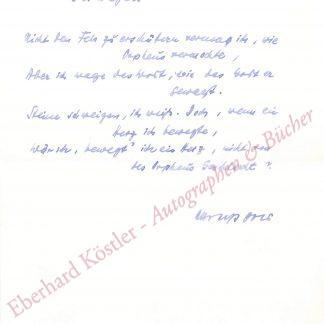 Nicht den Fels zu erschüttern vermag ich, wie
Orpheus vermochte,
Aber ich wage das Wort, wie das Wort er
bewegt.
Steine schweigen, ich weiß. Doch, wenn ein
Herz ich bewegte,
wär ich, bewegt' ich ein Herz, nicht
des Orpheus
Eberhard Köstler - Autographen & Bücher